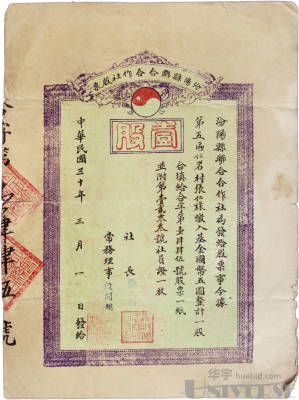 汾陽縣聯合合作社股票
壹股
汾陽縣聯合合作社為發給股票事今據
第五區仁岩村張仁緣繳入基金國幣五圓整計一股
合填給合字第壹肆肆伍號股票一紙
並附第壹貳零叁號社員證一枚
社長
常務理事
中華民國三十年三月一日發給
華宇 huahid.com
UNIVERSE